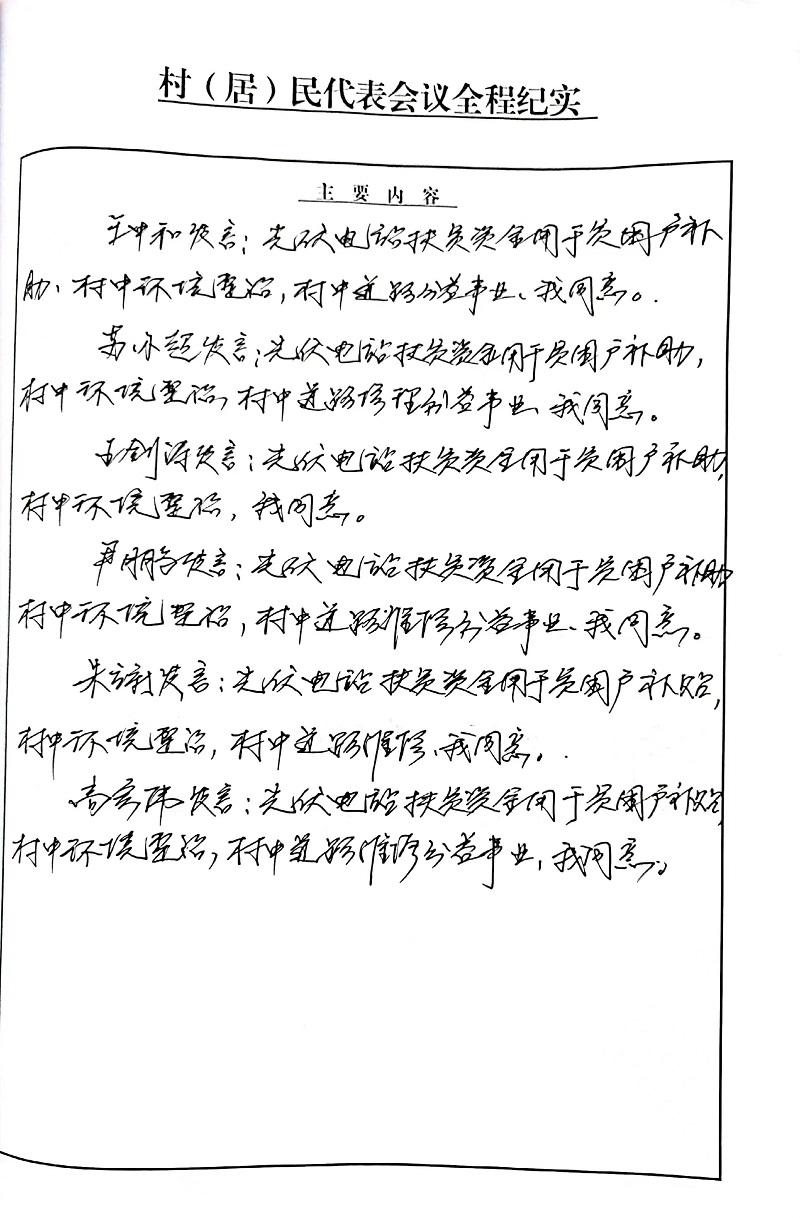 村（居）民代表会议全程纪实
主要内容
王中和发言：光伏电站扶贫资金用于贫困户补
助、村中环境整治，村中道路公益事业、我同意。
苏小超发言：光伏电站扶贫资金用于贫困户补助，
村中环境整治，村中道路修理公益事业、我同意。
王剑涛发言：光伏电站扶贫资金用于贫困户补助，
村中环境整治，我同意。
发言：光伏电站扶贫资金用于贫困户补助
村中环境整治，村中道路维修公益事业、我同意。
朱 发言：光伏电站扶贫资金用于贫困户补贴，
村中环境整治，村中道路维修、我同意。
高 伟发言：光伏电站扶贫资金用于贫困户补贴，
村中环境整治，村中道路维修公益事业，我同意。